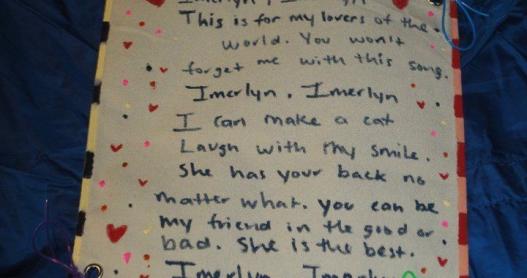 Imerlyn, Imerlyn
This is for my lovers of the
world. You won't
forget me with this song.
Imerlyn, Imerlyn
I can make a cat
Laugh with my smile.
She has your back no
matter what. you can be
my friend in the good or
bad. She is the best.
Imerlyn, Imerlyn